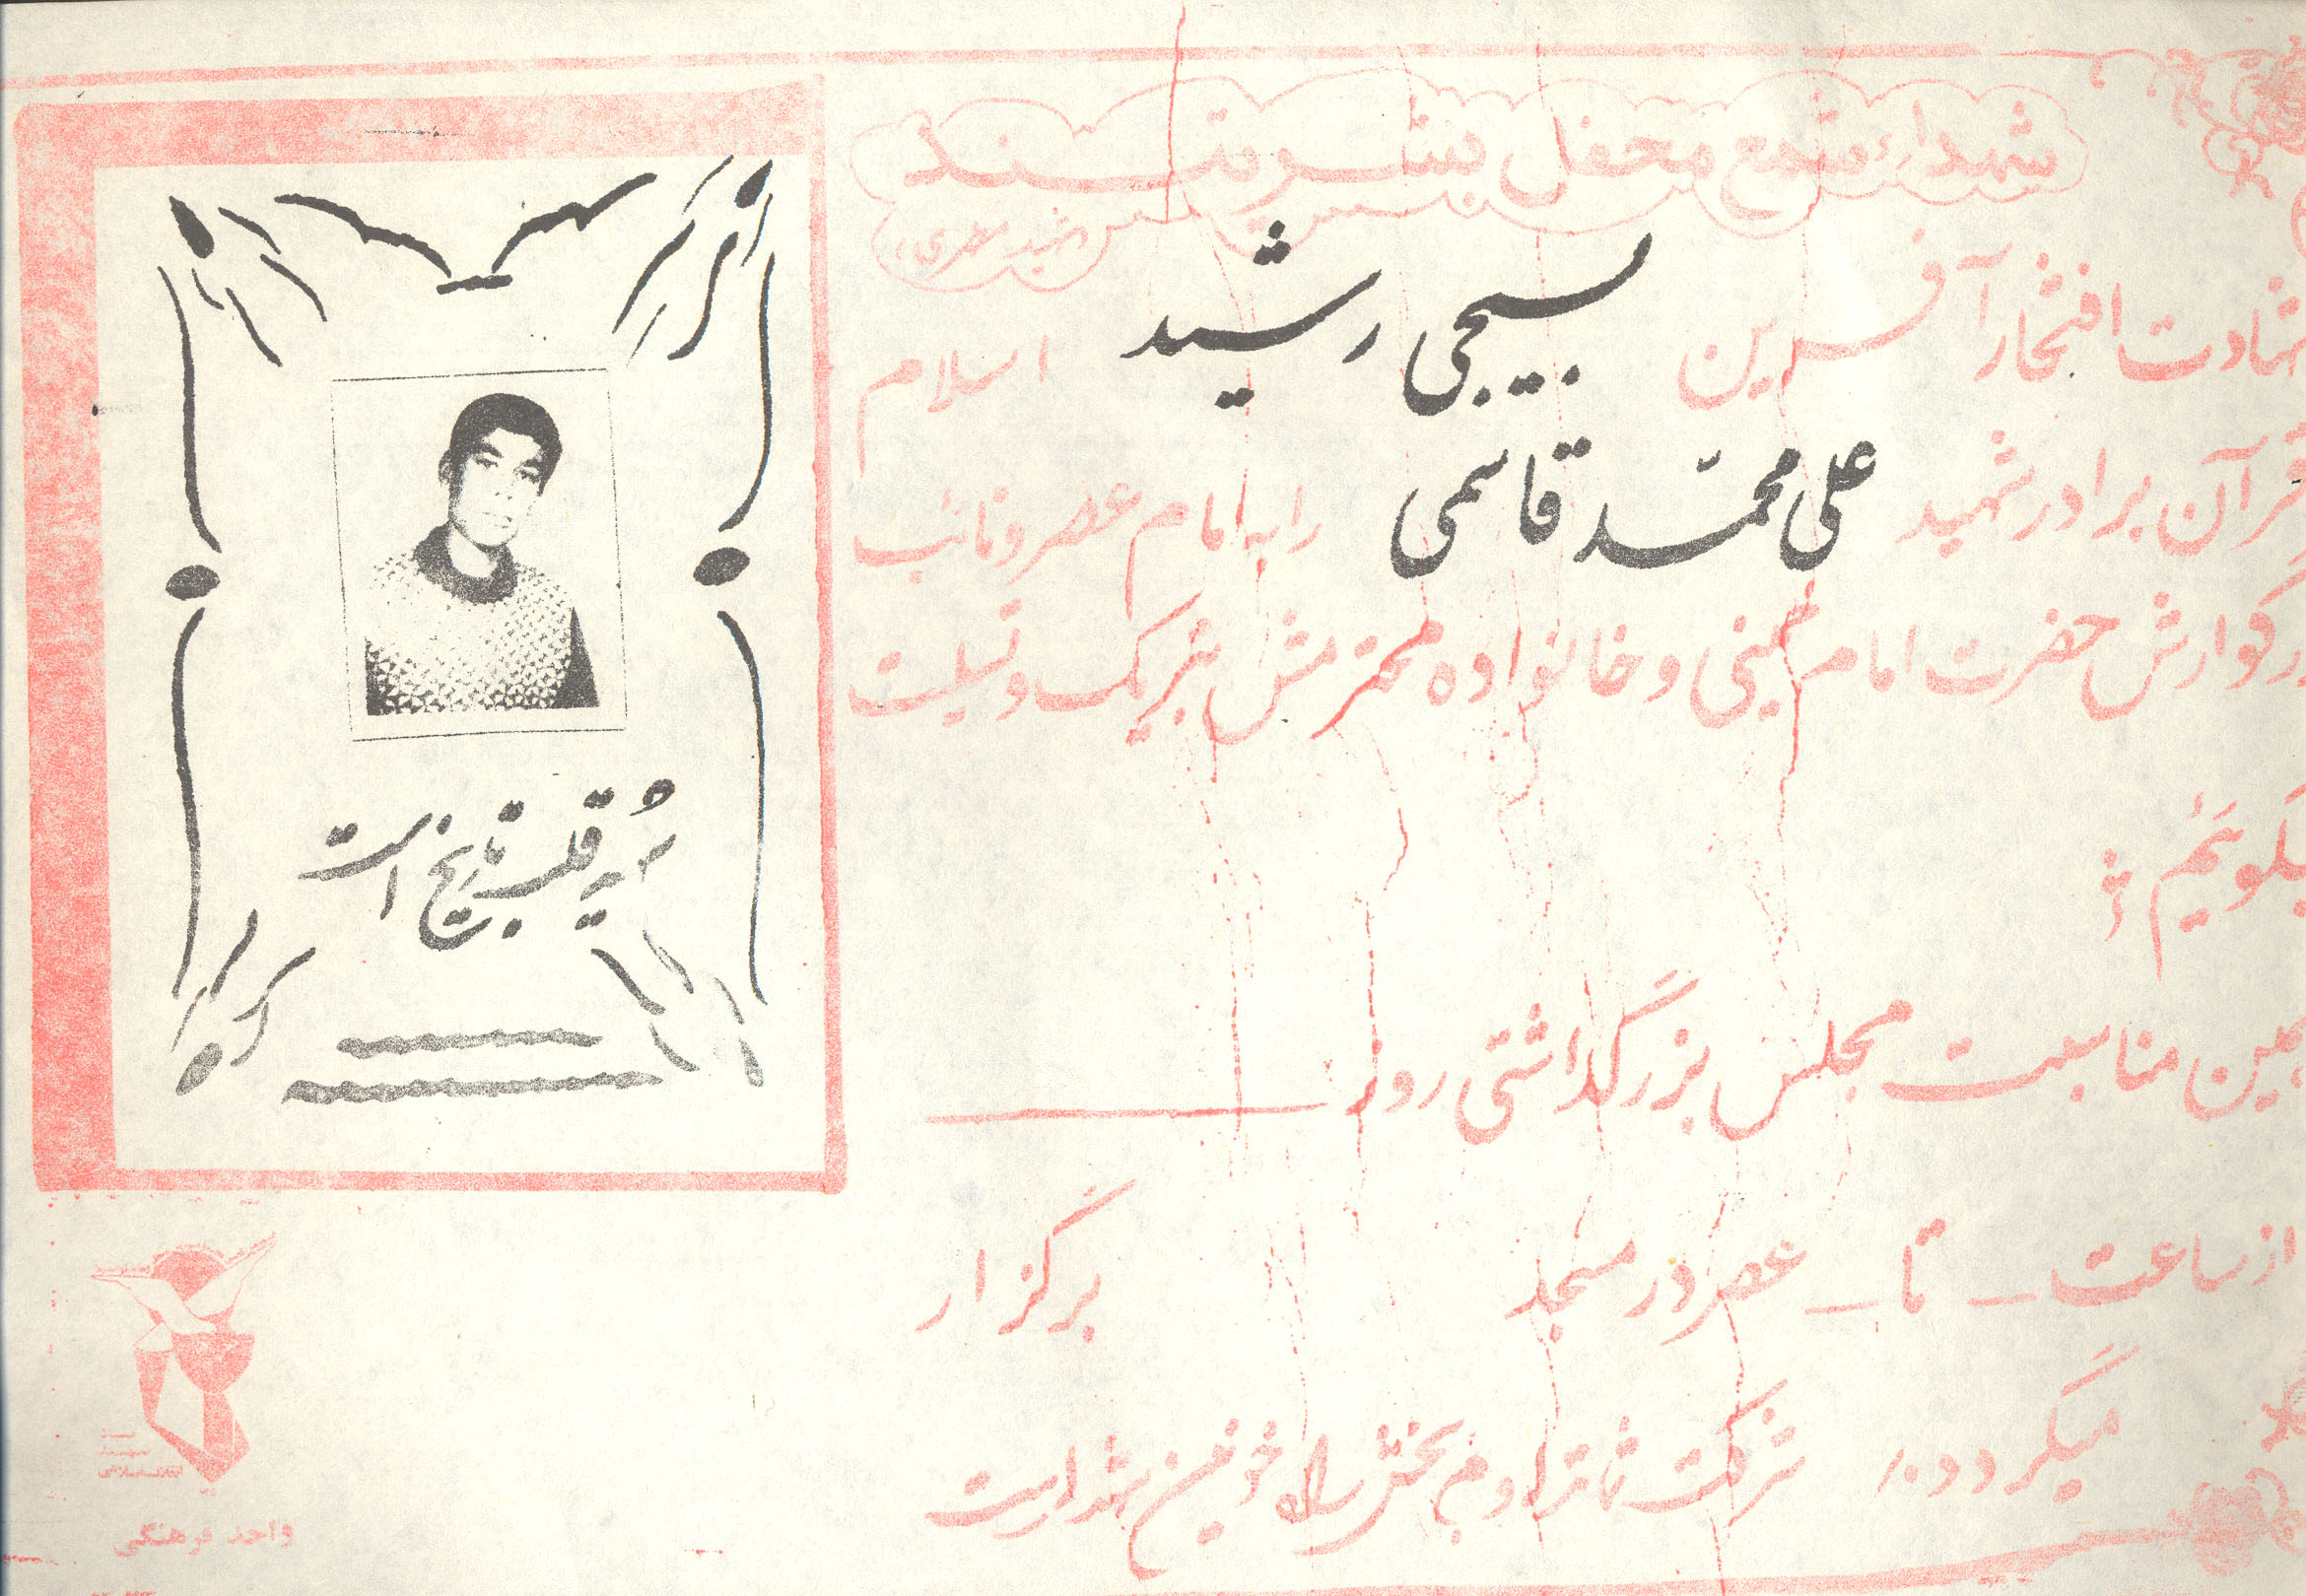 شهداء شمع محفل بشریتند
شهید مطهری
شهادت افتخار آفرین بسیجی رشید اسلام
قرآن برادر شهید علی محمّد قاسمی را به امام عصر و نائب
بزرگوارش حضرت امام خمینی و خانواده محترمش تبریک و تسلیت
میگوئیم؛
بهمین مناسبت مجلس بزرگداشتی روز
از ساعت _ تا _ عصر در مسجد برگزار
میگردد.
شرکت شما تداوم بخش راه خونین شهداست
شهید قلب تاریخ است
واحد فرهنگی